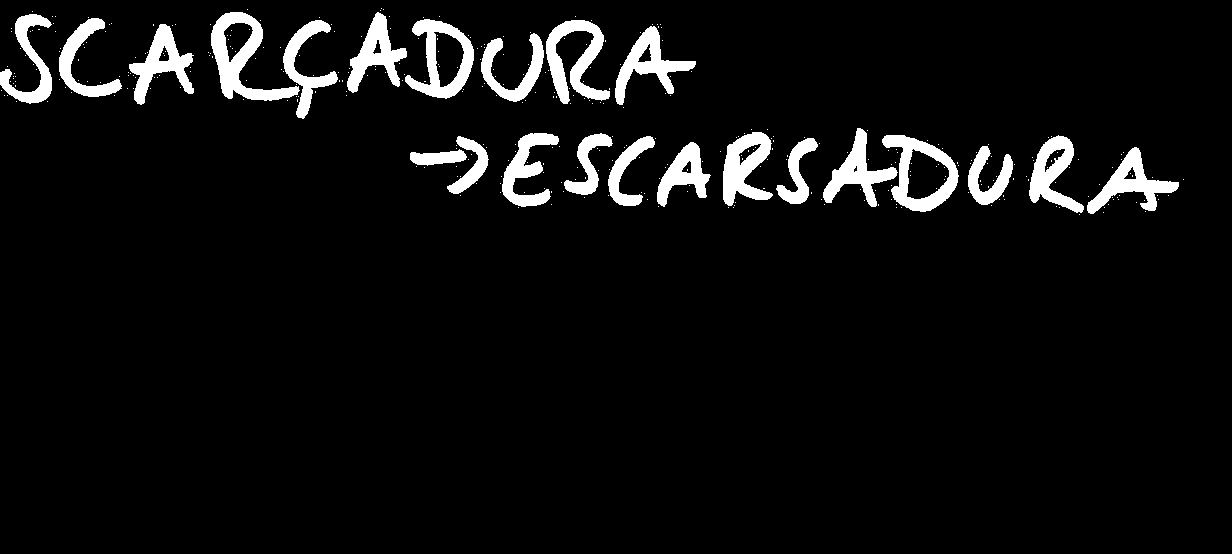 SCARÇADURA
→ESCARSADURA